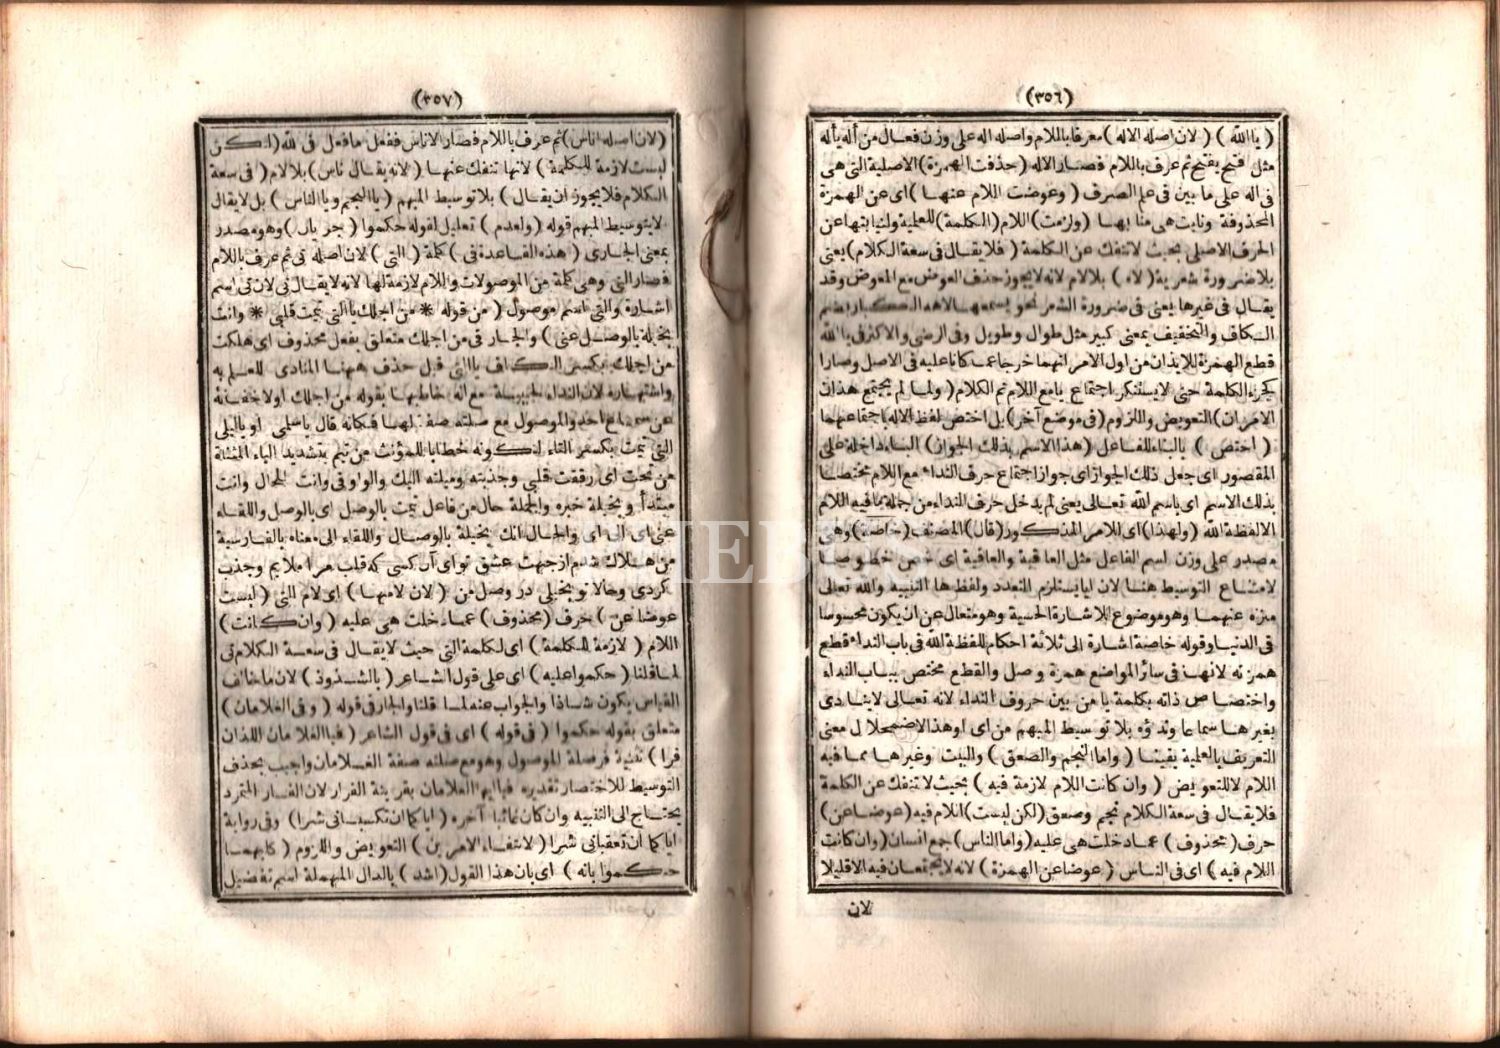 (٣٥٦)
( يا الله ) ( لان اصله الاله ) معرفا باللام واصله اله على وزن فعال من أله يأله
مثل فتح يفتح ثم عرف باللام فصار الاله ( حذفت الهمزة ) الاصلية التى هى
فى اله على ما بين فى علم الصرف ( وعوضت اللام عنها ) اى عن الهمزة
المحذوفة ونابت هى منابها ( ولزمت ) اللام ( الكلمة ) للعلمية ولنيابتها عن
الحرف الاصلى بحيث لا تنفك عن الكلمة ( فلا يقال فى سعة الكلام ) يعنى
بلا ضرورة شعرية ( لاه ) بلا لام لانه لا يجوز حذف العوض مع المعوض وقد
يقال فى غيرها يعنى فى ضرورة الشعر نحو يسمعها لاهه الكبار بضم
الكاف والتخفيف بمعنى كبير مثل طوال وطويل وفى الرضى والاكثر فى يا الله
قطع الهمزة للايذان من اول الامر انهما خرجا عما كانا عليه فى الاصل وصارا
كجزء الكلمة حتى لا يستنكر اجتماع يا مع اللام ثم الكلام ( ولما لم يجتمع هذان
الامران ) التعويض واللزوم ( فى موضع آخر ) بل اختص لفظ الاله باجتماعهما
( اختص ) بالبناء للفاعل ( هذا الاسم بذلك الجواز ) الباء داخلة على
المقصور اى جعل ذلك الجواز اى جواز اجتماع حرف النداء مع اللام مختصا
بذلك الاسم اى باسم الله تعالى يعنى لم يدخل حرف النداء من جملة ما فيه اللام
الا لفظة الله ( ولهذا ) اى للامر المذكور ( قال ) المصنف ( خاصة ) وهى
مصدر على وزن اسم الفاعل مثل العاقبة والعافية اى خص خصوصا
لامتناع التوسيط هنا لان ايا يستلزم التعدد ولفظ ها التنبيه والله تعالى
منزه عنهما وهو موضوع للاشارة الحسية وهو متعال عن ان يكون محسوسا
فى الدنيا وقوله خاصة اشارة الى ثلاثة احكام للفظة الله فى باب النداء قطع
همزته لانها فى سائر المواضع همزة وصل والقطع مختص بباب النداء
واختصاص ذاته بكلمة يا من بين حروف النداء لانه تعالى لا ينادى
بغيرها سماعا وندؤه بلا توسيط المبهم من اى او هذا الاضمحلال معنى
التعريف بالعلمية يقينا ( واما النجم والصعق ) والبيت وغيرها مما فيه
اللام لا للتعويض ( وان كانت اللام لازمة فيه ) بحيث لا تنفك عن الكلمة
فلا يقال فى سعة الكلام نجم وصعق ( لكن ليست ) اللام فيه ( عوضا عن )
حرف ( محذوف ) عما دخلت هى عليه ( واما الناس ) جمع انسان ( وان كانت
اللام فيه ) اى فى الناس ( عوضا عن الهمزة ) لانه لا يجتمعان فيه الا قليلا
لان
(٣٥٧)
( لان اصله اناس ) ثم عرف باللام فصار الاناس ففعل ما فعل فى لله ( لكن
ليست لازمة للكلمة ) لانها تنفك عنها ( لانه يقال ناس ) بلا لام ( فى سعة
الكلام فلا يجوز ان يقال ) بلا توسيط المبهم ( يا النجم ويا الناس ) بل لا يقال
لا بتوسيط المبهم قوله ( ولعدم ) تعليل لقوله حكموا ( جريان ) وهو مصدر
بمعنى الجارى ( هذه القاعدة فى ) كلمة ( التى ) لان اصله تى ثم عرف باللام
فصار التى وهى كلمة من الموصولات واللام لازمة لها لانه لا يقال تى لان تى اسم
اشارة والتى اسم موصول ( من قوله * من اجلك يا التى تيمت قلبى * وانت
بخيلة بالوصل عنى ) والجار فى من اجلك متعلق بفعل محذوف اى هلكت
من اجلك بكسر الكاف يا التى قبل حذف ههنا المنادى للعلم به
واشتهاره لان النداء لحبيبة مع انه خاطبها بقوله من اجلك اولا خفية
عن سماع احد والموصول مع صلته صفة لها فكانه قال يا سلمى او يا ليلى
التى تيمت بكسر التاء لكونه خطابا للمؤنث من تيم بتشديد الياء المثناة
من تحت اى رققت قلبى وجذبته وميلته اليك والواو فى وانت للحال وانت
مبتدأ وبخيلة خبره والجملة حال من فاعل تيمت بالوصل اى بالوصل واللقاء
عنى اى الى اى والحال انك بخيلة بالوصال واللقاء الى معناه بالفارسية
من هلاك شدم از جهت عشق تو اى آن كسى كه قلب مرا ملايم وجذب
كردى وحالا تو بخيلى در وصل من ( لان لامها ) اى لام التى ( ليست
عوضا عن ) حرف ( محذوف ) عما دخلت هى عليه ( وان كانت )
اللام ( لازمة للكلمة ) اى لكلمة التى حيث لا يقال فى سعة الكلام تى
لما قلنا ( حكموا عليه ) اى على قول الشاعر ( بالشذوذ ) لان ما خالف
القياس يكون شاذا والجواب عنه لما قلنا والجار فى قوله ( وفى الغلامان )
متعلق بقوله حكموا ( فى قوله ) اى فى قول الشاعر ( فيا الغلامان اللذان
فرا ) تثنية فر صلة الموصول وهو مع صلته صفة الغلامان واجيب بحذف
التوسيط للاختصار تقديره فيا ايها الغلامان بقرينة الفرار لان الفار المتمرد
يحتاج الى التنبيه وان كان غائبا آخره ( اياكما ان تكسبانى شرا ) وفى رواية
اياكما ان تعقبانى شرا ( لانتفاء الامرين ) التعويض واللزوم ( كليهما
حكموا بانه ) اى بان هذا القول ( اشد ) بالدال المهملة اسم تفضيل